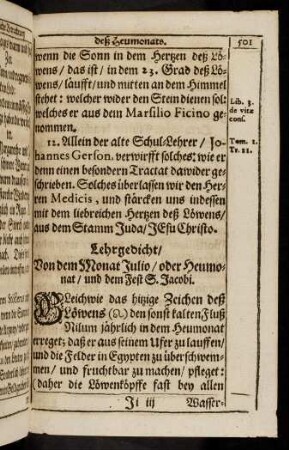 deß Heumonats.
501
wenn die Sonn in dem Hertzen deß Lö-
wens / das ist / in dem 23. Grad deß Lö-
wens / läufft / und mitten an dem Himmel
stehet: welcher wider den Stein dienen sol:
welches er aus dem Marsilio Ficino ge-
nommen.
Lib. 3.
de vitæ
cœl.
12. Allein der alte Schul-Lehrer / Jo-
hannes Gerson. verwirfft solches: wie er
denn einen besondern Tractat dawider ge-
schrieben. Solches überlassen wir den Her-
ren Medicis, und stärcken uns indessen
mit dem liebreichen Hertzen deß Löwens /
aus dem Stamm Juda / JEsu Christo.
Tom. 1.
Tr. 11.
Lehrgedicht /
Von dem Monat Julio / oder Heumo-
nat / und dem Fest S. Jacobi.
GLeichwie das hitzige Zeichen deß
Löwens (♌) den sonst kalten Fluß
Nilum jährlich in dem Heumonat
erreget; daß er aus seinem Ufer zu lauffen /
und die Felder in Egypten zu überschwem-
men / und fruchtbar zu machen / pfleget:
(daher die Löwenköpffe fast bey allen
Ii iij
Wasser-